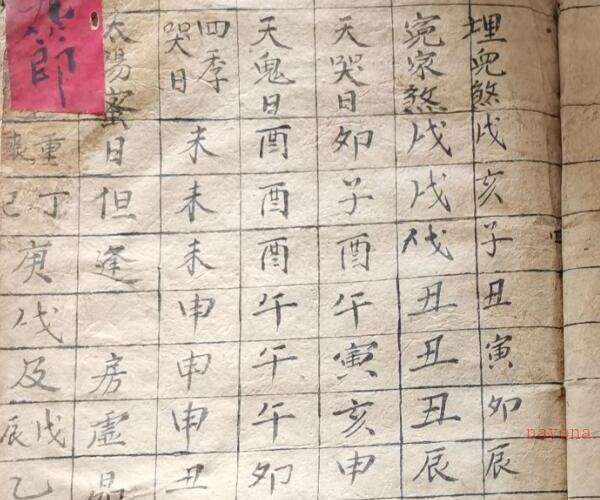 埋兒煞戌亥子丑寅卯辰
冤家煞戌戌戌丑丑丑辰
天哭日卯子酉午寅亥申
天鬼日酉酉酉午午午卯
四季
哭日未未未申申申丑
太陽蜜日但逢房虛昴
郎
重
丁
己
庚
戊
及
戊
辰
乙
nayona